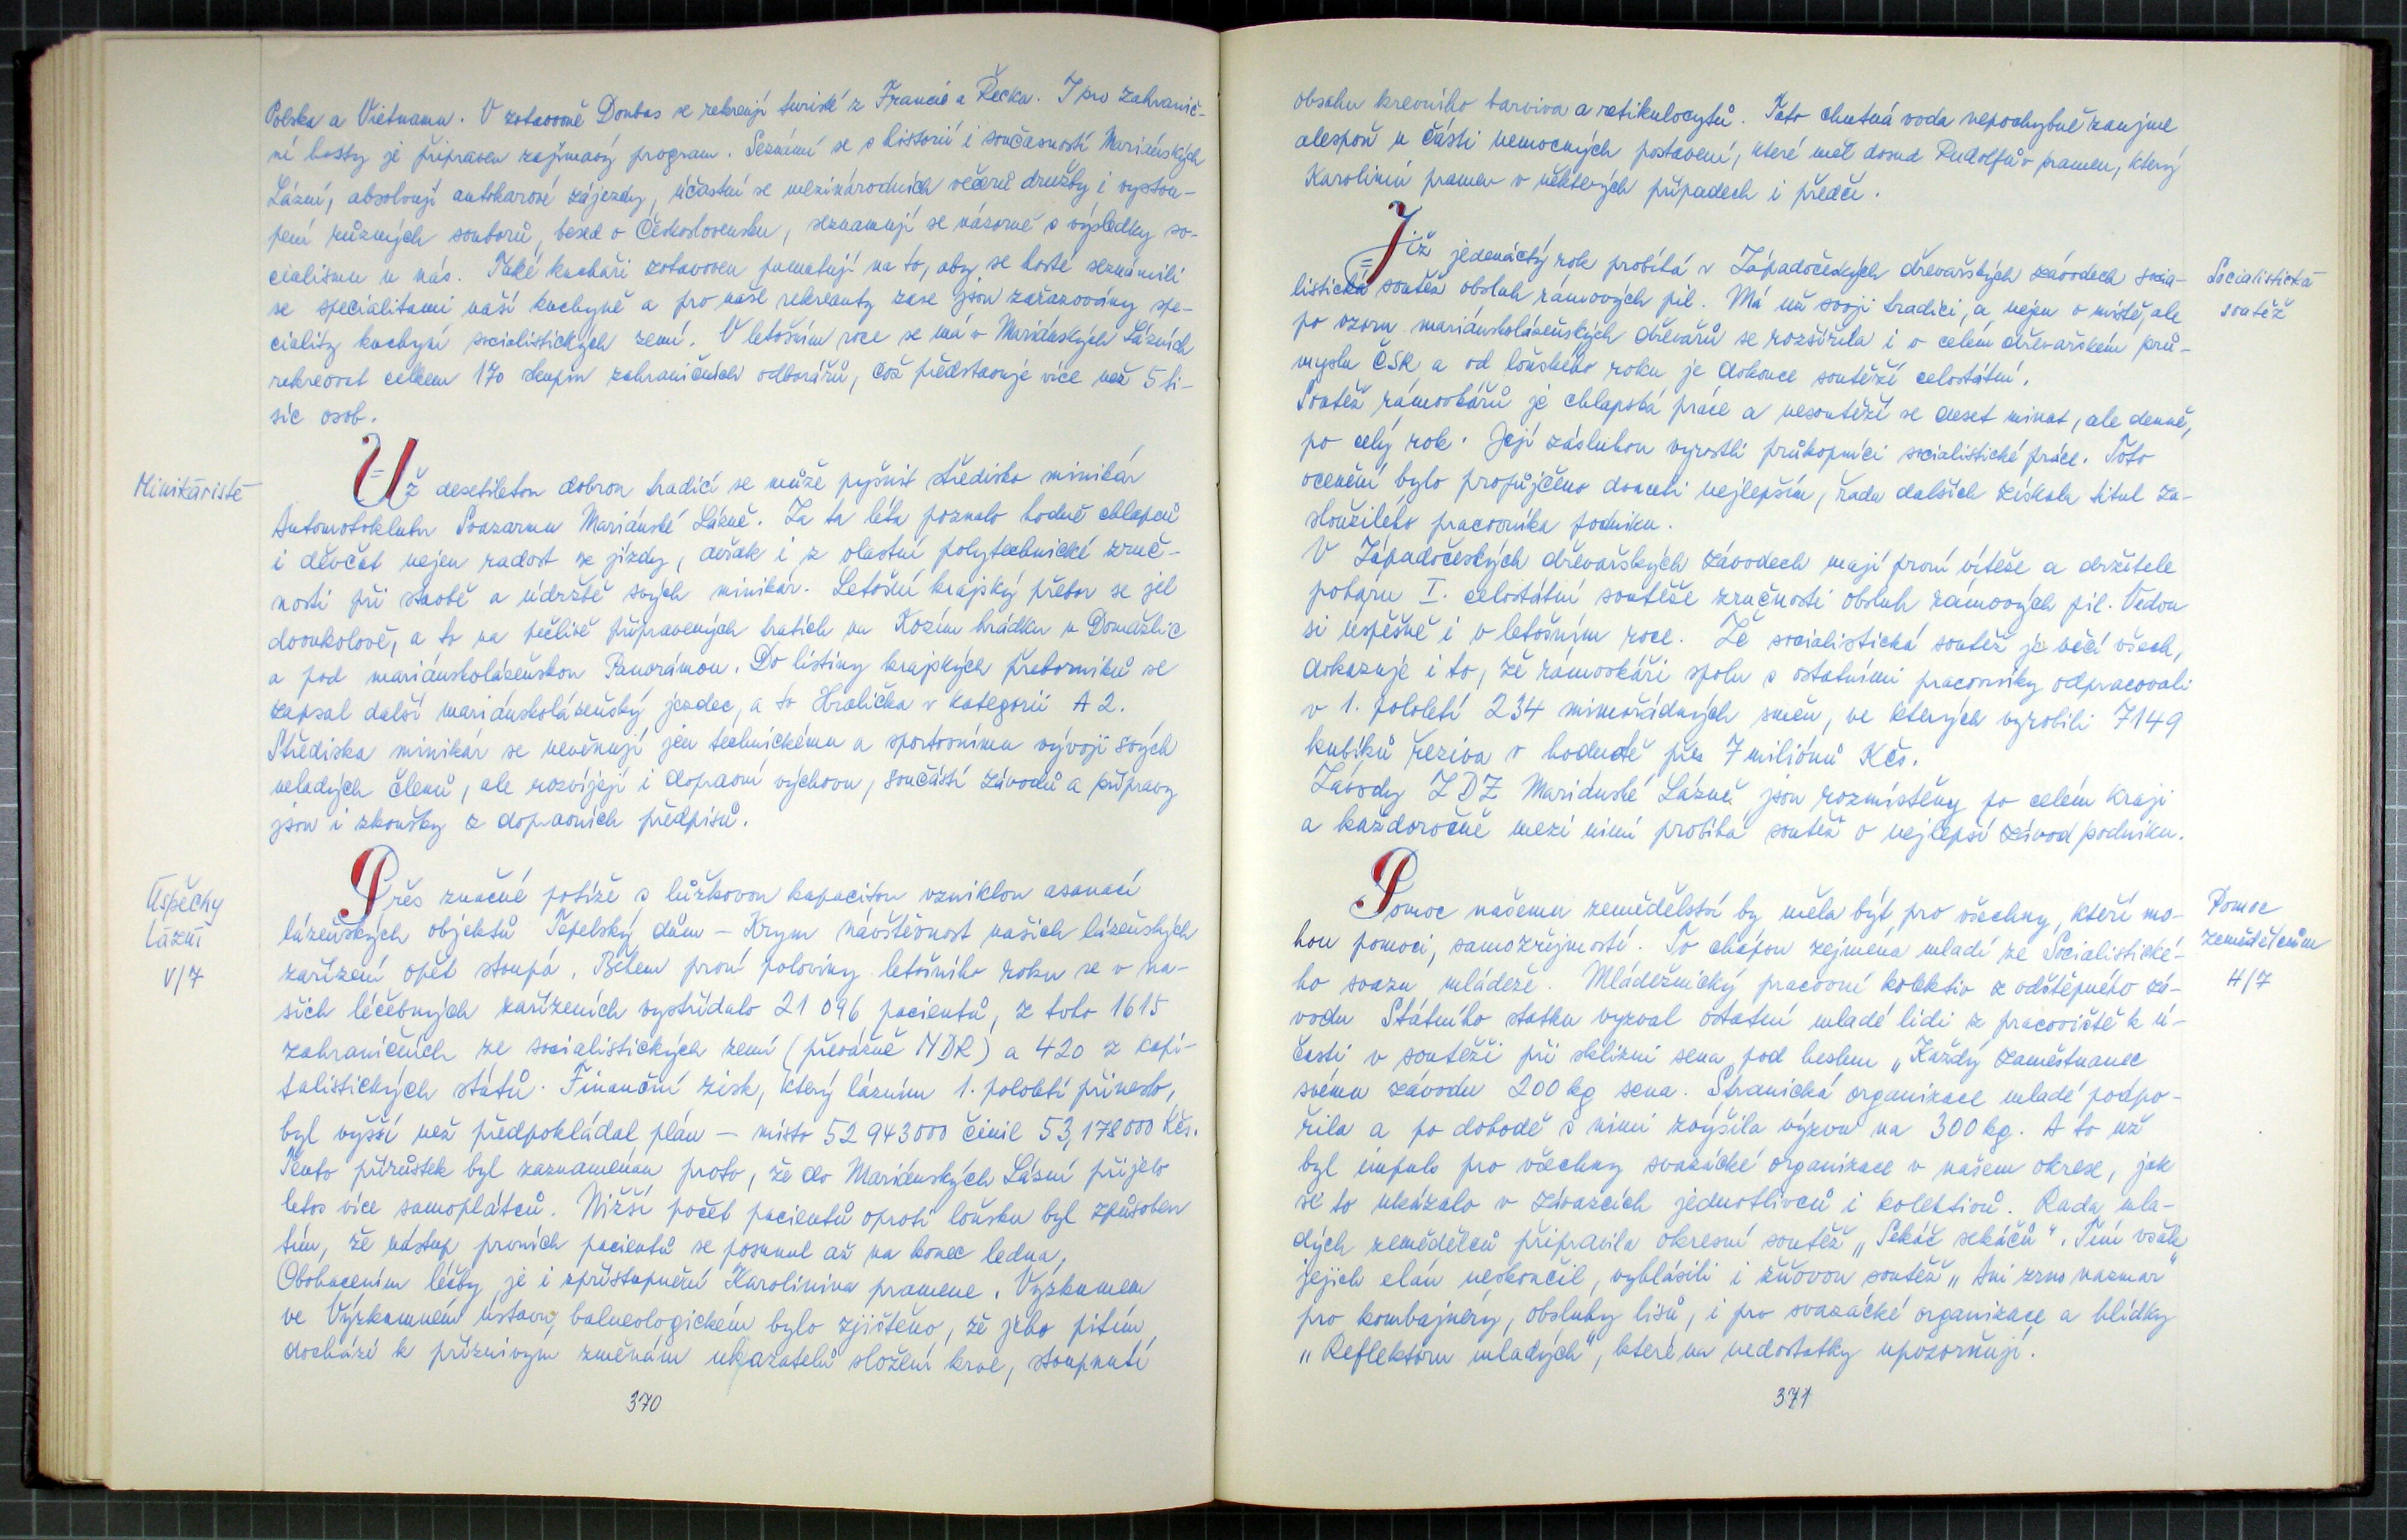 Polska a Vietnamu. V zotavovně Donbas se rekreují turisté z Francie a Řecka. I pro zahranič-
ní hosty je připraven zajímavý program. Seznámí se s historií i současností Mariánských
Lázní, absolvují autokarové zájezdy, účastní se mezinárodních večerů družby i vystou-
pení různých souborů, besed o Československu, seznamují se názorně s výsledky so-
cialismu u nás. Také kuchaři zotavoven pamatují na to, aby se hosté seznámili
se specialitami naší kuchyně a pro naše rekreanty zase jsou zařazovány spe-
ciality kuchyní socialistických zemí. V letošním roce se má v Mariánských Lázních
rekreovat celkem 170 skupin zahraničních odborářů, což představuje více než 5 ti-
síc osob.
Minikáristé
Už desetiletou dobrou tradicí se může pyšnit středisko minikár
Automotoklubu Svazarmu Mariánské Lázně. Za ta léta poznalo hodně chlapců
i děvčat nejen radost z jízdy, avšak i z vlastní polytechnické zruč-
nosti při stavbě a údržbě svých minikár. Letošní krajský přebor se jel
dvoukolově, a to na pečlivě připravených tratích na Kozím hrádku u Domažlic
a pod mariánskolázeňskou Panorámou. Do listiny krajských přeborníků se
zapsal další mariánskolázeňský jezdec, a to Hralička v kategorii A 2.
Střediska minikár se nevěnují jen technickému a sportovnímu vývoji svých
mladých členů, ale rozvíjejí i dopravní výchovu, součástí závodů a přípravy
jsou i zkoušky z dopravních předpisů.
Úspěchy
lázní
V/7
Přes značné potíže s lůžkovou kapacitou vzniklou asanací
lázeňských objektů Tepelský dům - Krym návštěvnost našich lázeňských
zařízení opět stoupá. Během první poloviny letošního roku se v na-
šich léčebných zařízeních vystřídalo 21 096 pacientů, z toho 1615
zahraničních ze socialistických zemí (převážně NDR) a 420 z kapi-
talistických států. Finanční zisk, který lázním 1. pololetí přineslo,
byl vyšší než předpokládal plán - místo 52 943 000 činil 53,178 000 Kčs.
Tento přírůstek byl zaznamenán proto, že do Mariánských Lázní přijelo
letos více samoplátců. Nižší počet pacientů oproti loňsku byl způsoben
tím, že nástup prvních pacientů se posunul až na konec ledna.
Obohacením léčby je i zpřístupnění Karolinina pramene. Výzkumem
ve Výzkumném ústavu balneologickém bylo zjištěno, že jeho pitím
dochází k příznivým změnám ukazatelů složení krve, stoupnutí
370
obsahu krevního barviva a retikulocytů. Tato chutná voda nepochybně zaujme
alespoň u části nemocných postavení, které měl dosud Rudolfův pramen, který
Karolinin pramen v některých případech i předčí.
Socialistická
soutěž
Již jedenáctý rok probíhá v Západočeských dřevařských závodech socia-
listická soutěž obsluh rámových pil. Má už svoji tradici, a nejen v místě, ale
po vzoru mariánskolázeňských dřevařů se rozšířila i v celém dřevařském prů-
myslu ČSR a od loňského roku je dokonce soutěží celostátní.
Soutěž rámovkářů je chlapská práce a nesoutěží se deset minut, ale denně,
po celý rok. Její zásluhou vyrostli průkopníci socialistické práce. Toto
ocenění bylo propůjčeno dvaceti nejlepším, řada dalších získala titul za-
sloužilého pracovníka podniku.
V Západočeských dřevařských závodech mají první vítěze a držitele
poháru I. celostátní soutěže zručnosti obsluh rámových pil. Vedou
si úspěšně i v letošním roce. Že socialistická soutěž je věcí všech,
dokazuje i to, že rámovkáři spolu s ostatními pracovníky odpracovali
v 1. pololetí 234 mimořádných směn, ve kterých vyrobili 7149
kubíků řeziva v hodnotě přes 7 miliónů Kčs.
Závody ZDZ Mariánské Lázně jsou rozmístěny po celém kraji
a každoročně mezi nimi probíhá soutěž o nejlepší závod podniku.
Pomoc
zemědělcům
H/7
Pomoc našemu zemědělství by měla být pro všechny, kteří mo-
hou pomoci, samozřejmostí. To chápou zejména mladí ze Socialistické-
ho svazu mládeže. Mládežnický pracovní kolektiv z odštěpného zá-
vodu Státního statku vyzval ostatní mladé lidi z pracoviště k ú-
časti v soutěži při sklizni sena pod heslem „Každý zaměstnanec
svému závodu 200 kg sena. Stranická organizace mladé podpo-
řila a po dohodě s nimi zvýšila výzvu na 300 kg. A to už
byl impuls pro všechny svazácké organizace v našem okrese, jak
se to ukázalo v závazcích jednotlivců i kolektivů. Rada mla-
dých zemědělců připravila okresní soutěž „Sekáč sekáčů“. Tím však
jejich elán neskončil, vyhlásili i žňovou soutěž „Ani zrno nazmar“
pro kombajnery, obsluhy lisů, i pro svazácké organizace a hlídky
„Reflektoru mladých“, které na nedostatky upozorňují.
371